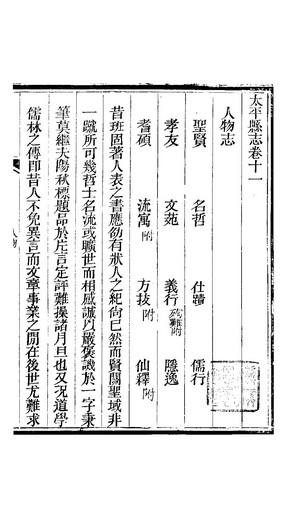 太平縣志卷十一
人物志
聖賢 名哲 仕蹟 儒行
孝友 文苑 義行死難附 隱逸
耆碩 流寓附 方技附 仙釋附
昔班固著人表之書應劭有狀人之紀尚已然而賢關聖域非
一蹴所可幾哲士名流或曠世而相感誠以嚴褒譏於一字秉
筆莫繼夫陽秋標題品於片言定評難操諸月旦也又況道學
儒林之傳即昔人不免異言而文章事業之閒在後世尤難求
人物